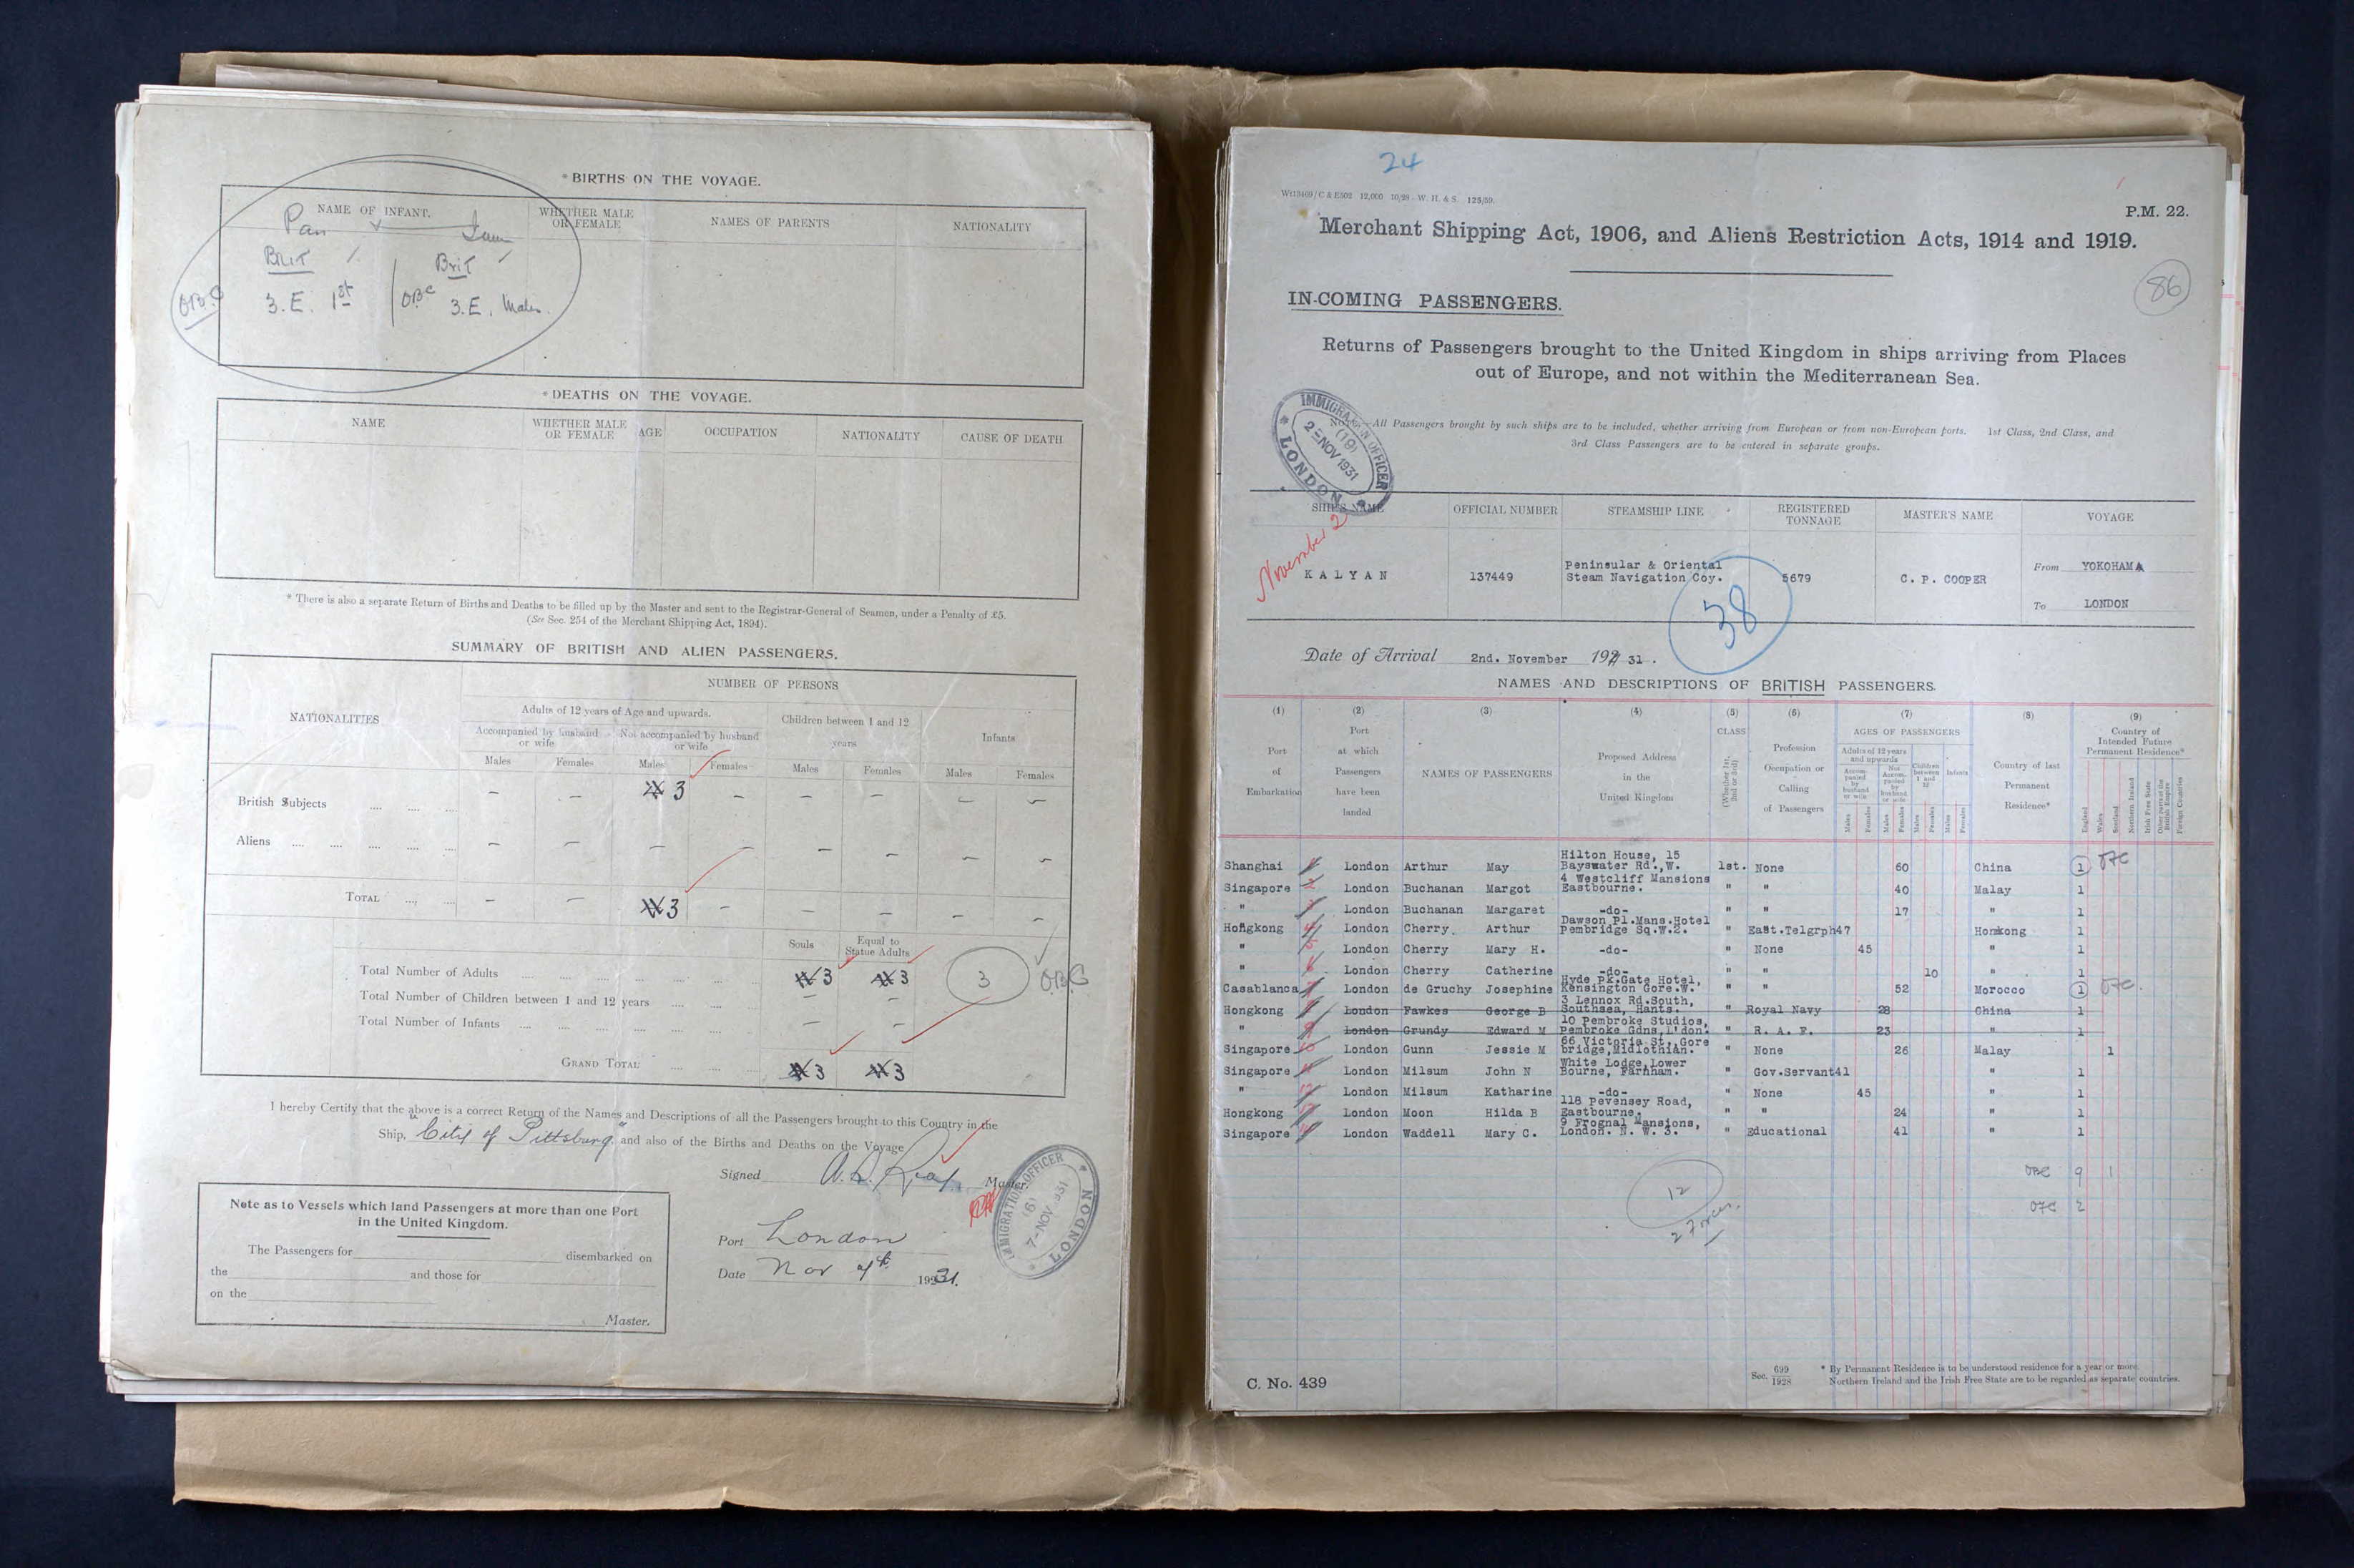 * BIRTHS ON THE VOYAGE.
NAME OF INFANT. WHETHER MALE OR FEMALE NAMES OF PARENTS NATIONALITY
Pan
BRIT Brit
OBC 3. E. 1st OBC 3. E. Males.
* DEATHS ON THE VOYAGE.
NAME WHETHER MALE OR FEMALE AGE OCCUPATION NATIONALITY CAUSE OF DEATH
* There is also a separate Return of Births and Deaths to be filled up by the Master and sent to the Registrar-General of Seamen, under a Penalty of £5.
(See Sec. 254 of the Merchant Shipping Act, 1894).
SUMMARY OF BRITISH AND ALIEN PASSENGERS.
NATIONALITIES NUMBER OF PERSONS
Adults of 12 years of Age and upwards. Children between 1 and 12 years Infants
Accompanied by husband or wife Not accompanied by husband or wife
Males Females Males Females Males Females Males Females
British Subjects .... .... .... - - 3 - - - - -
Aliens .... .... .... .... .... - - - - - - - -
TOTAL .... .... - - 3 - - - - -
Souls Equal to Statue Adults
Total Number of Adults .... .... .... .... .... 3 3 3 OBC
Total Number of Children between 1 and 12 years .... .... - -
Total Number of Infants .... .... .... .... .... - -
GRAND TOTAL .... .... .... 3 3
I hereby Certify that the above is a correct Return of the Names and Descriptions of all the Passengers brought to this Country in the
Ship, "City of Pittsburg" and also of the Births and Deaths on the Voyage
Signed Master.
IMMIGRATION OFFICER (6) 7-NOV 1931 LONDON
Port London
Date Nov 7th 1931.
Note as to Vessels which land Passengers at more than one Port
in the United Kingdom.
The Passengers for disembarked on
the and those for
on the
Master.
24
Wt13469/C & E502 12,000 10/28 W. H. & S. 125/59.
P.M. 22.
Merchant Shipping Act, 1906, and Aliens Restriction Acts, 1914 and 1919.
86
IN-COMING PASSENGERS.
Returns of Passengers brought to the United Kingdom in ships arriving from Places
out of Europe, and not within the Mediterranean Sea.
IMMIGRATION OFFICER (19) 2-NOV 1931 LONDON
NOTE.-All Passengers brought by such ships are to be included, whether arriving from European or from non-European ports. 1st Class, 2nd Class, and
3rd Class Passengers are to be entered in separate groups.
SHIP'S NAME OFFICIAL NUMBER STEAMSHIP LINE REGISTERED TONNAGE MASTER'S NAME VOYAGE
November 2
KALYAN 137449 Peninsular & Oriental Steam Navigation Coy. 5679 C. P. COOPER From YOKOHAMA
To LONDON
38
Date of Arrival 2nd. November 192 31.
NAMES AND DESCRIPTIONS OF BRITISH PASSENGERS.
(1) (2) (3) (4) (5) (6) (7) (8) (9)
Port of Embarkation
Port at which Passengers have been landed
NAMES OF PASSENGERS
Proposed Address in the United Kingdom
CLASS (Whether 1st, 2nd or 3rd)
Profession Occupation or Calling of Passengers
AGES OF PASSENGERS
Adults of 12 years and upwards Children between 1 and 12 Infants
Accompanied by husband or wife Not Accompanied by husband or wife
Males Females Males Females Males Females Males Females
Country of last Permanent Residence*
Country of Intended Future Permanent Residence*
England Wales Scotland Northern Ireland Irish Free State Other parts of the British Empire Foreign Countries
Shanghai 1 London Arthur May Hilton House, 15 Bayswater Rd., W. 1st. None 60 China 1 OFC
Singapore 2 London Buchanan Margot 4 Westcliff Mansions Eastbourne. " " 40 Malay 1
" 3 London Buchanan Margaret -do- " " 17 " 1
Hongkong 4 London Cherry Arthur Dawson Pl.Mans.Hotel Pembridge Sq.W.2. " East.Telgrph 47 Honkong 1
" 5 London Cherry Mary H. -do- " None 45 " 1
" 6 London Cherry Catherine -do- " " 10 " 1
Casablanca 7 London de Gruchy Josephine Hyde Pk.Gate Hotel, Kensington Gore.W. " " 52 Morocco 1 OFC.
Hongkong 8 London Fawkes George B 3 Lennox Rd.South, Southsea, Hants. " Royal Navy 28 China 1
" 9 London Grundy Edward M 10 Pembroke Studios, Pembroke Gdns, L'don. " R. A. F. 23 " 1
Singapore 10 London Gunn Jessie M 66 Victoria St., Gore bridge, Midlothian. " None 26 Malay 1
Singapore 11 London Milsum John N White Lodge, Lower Bourne, Farnham. " Gov.Servant 41 " 1
" 12 London Milsum Katharine -do- " None 45 " 1
Hongkong 13 London Moon Hilda B 118 Pevensey Road, Eastbourne. " " 24 " 1
Singapore 14 London Waddell Mary C. 9 Frognal Mansions, London. N. W. 3. " Educational 41 " 1
OBC 9 1
12
2 Forces.
OFC 2
C. No. 439
Sec. 699/1928
* By Permanent Residence is to be understood residence for a year or more.
Northern Ireland and the Irish Free State are to be regarded as separate countries.